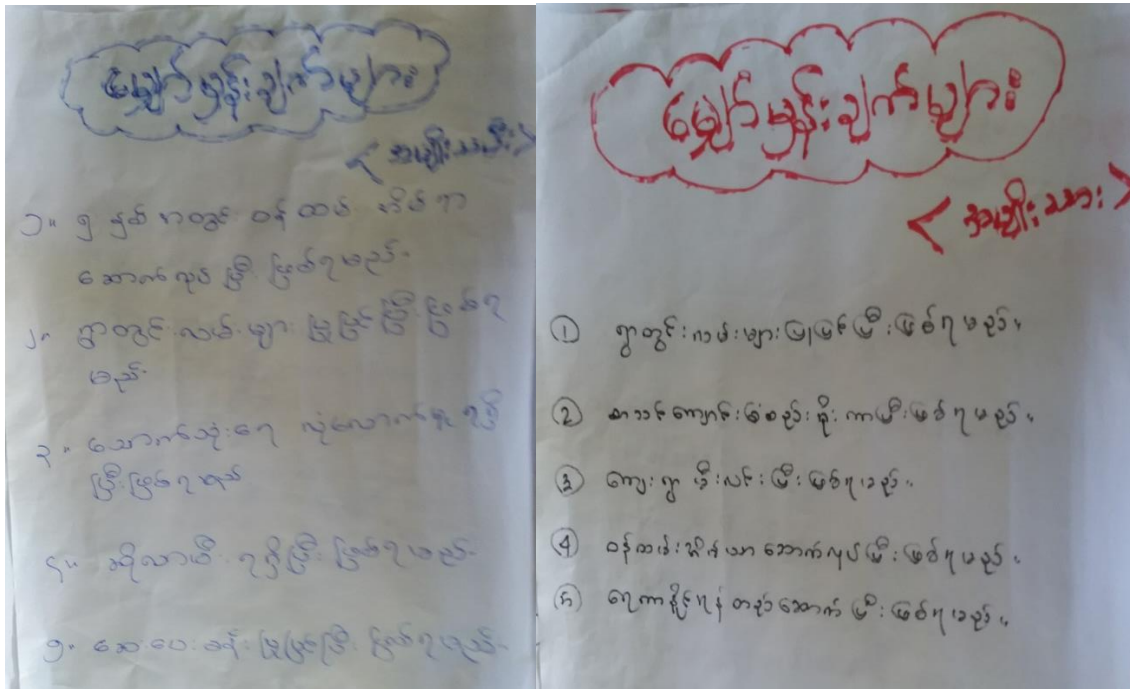 မျှော်မှန်းချက်များ
< အမျိုးသမီး >
၁။ ၅ နှစ် အတွင်း ဝန်ထမ်း အိမ်ရာ
ဆောက်လုပ်ပြီး ဖြစ်ရမည်။
၂။ ရွာတွင်းလမ်းများ ပြုပြင်ပြီးဖြစ်ရ
မည်။
၃။ သောက်သုံးရေ လုံလောက်စွာ ရရှိ
ပြီးဖြစ်ရမည်
၄။ ဆိုလာမီး ရရှိပြီး ဖြစ်ရမည်။
၅။ ဆေးပေးခန်း ပြုပြင်ပြီး ဖြစ်ရမည်။
မျှော်မှန်းချက်များ
< အမျိုးသား >
① ရွာတွင်းလမ်းများပြုပြင်ပြီးဖြစ်ရမည်။
② စာသင်ကျောင်းခြံစည်းရိုးကာပြီးဖြစ်ရမည်။
③ ကျေးရွာ မီးလင်းပြီးဖြစ်ရမည်။
④ ဝန်ထမ်းအိမ်ယာဆောက်လုပ်ပြီးဖြစ်ရမည်။
⑤ ရေကာနိုင်ရန် တည်ဆောက်ပြီးဖြစ်ရမည်။